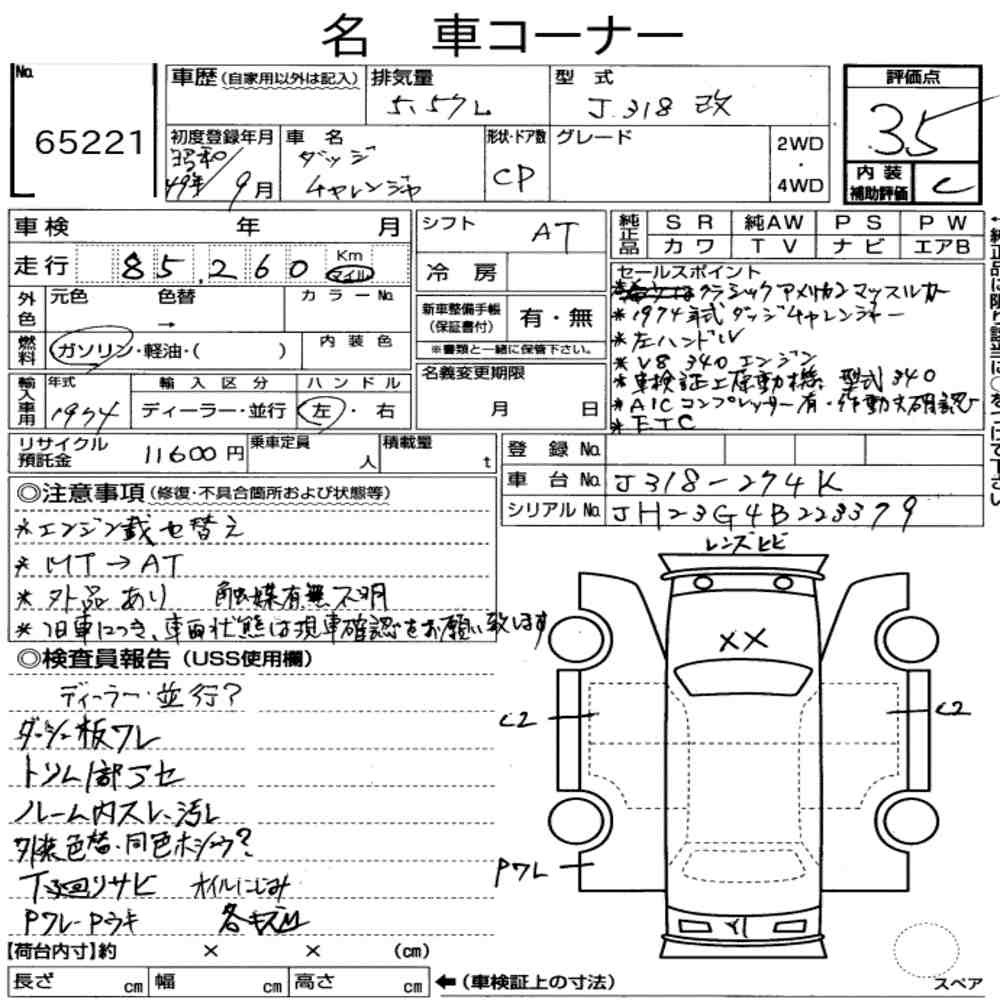 名 車コーナー
No.
65221
車歴(自家用以外は記入)
排気量
5.57L
型 式
J318 改
評価点
3.5
初度登録年月
昭和49年/9月
車 名
ダッジ
チャレンジャ
形状・ドア数
CP
グレード
2WD
・
4WD
内 装
補助評価
C
車検 年 月
走行 85,260 Km マイル
シフト AT
冷 房
純正品
SR 純AW PS PW
カワ TV ナビ エアB
外色 元色 色替 → カラーNo.
燃料 ガソリン・軽油・( )
内 装 色
新車整備手帳
(保証書付)
有・無
※書類と一緒に保管下さい。
セールスポイント
クラシックアメリカンマッスルカー
*1974年式ダッジチャレンジャー
*左ハンドル
*V8 340 エンジン
*車検証上原動機 型式340
*A/Cコンプレッサー有・作動未確認
*ETC
輸入車用 年式 1974
輸 入 区 分
ディーラー・並行
ハ ン ド ル
左・右
名義変更期限
月 日
リサイクル
預託金 11600円
乗車定員 人
積載量 t
登 録 No.
車 台 No. J318-274K
シリアルNo. JH23G4B223379
◎注意事項(修復・不具合箇所および状態等)
*エンジン載せ替え
*MT→AT
*外品あり 触媒有無不明
*旧車につき、車両状態は現車確認をお願い致します
◎検査員報告(USS使用欄)
ディーラー・並行?
ダッシュ板ワレ
トリム1部アセ
ルーム内スレ、汚れ
外装色替・同色ホシュウ?
下廻りサビ オイルにじみ
Pワレ-Pウキ
レンズヒビ
XX
C2
C2
Pワレ
スペア
【荷台内寸】約 × × (cm)
長さ cm 幅 cm 高さ cm
←(車検証上の寸法)